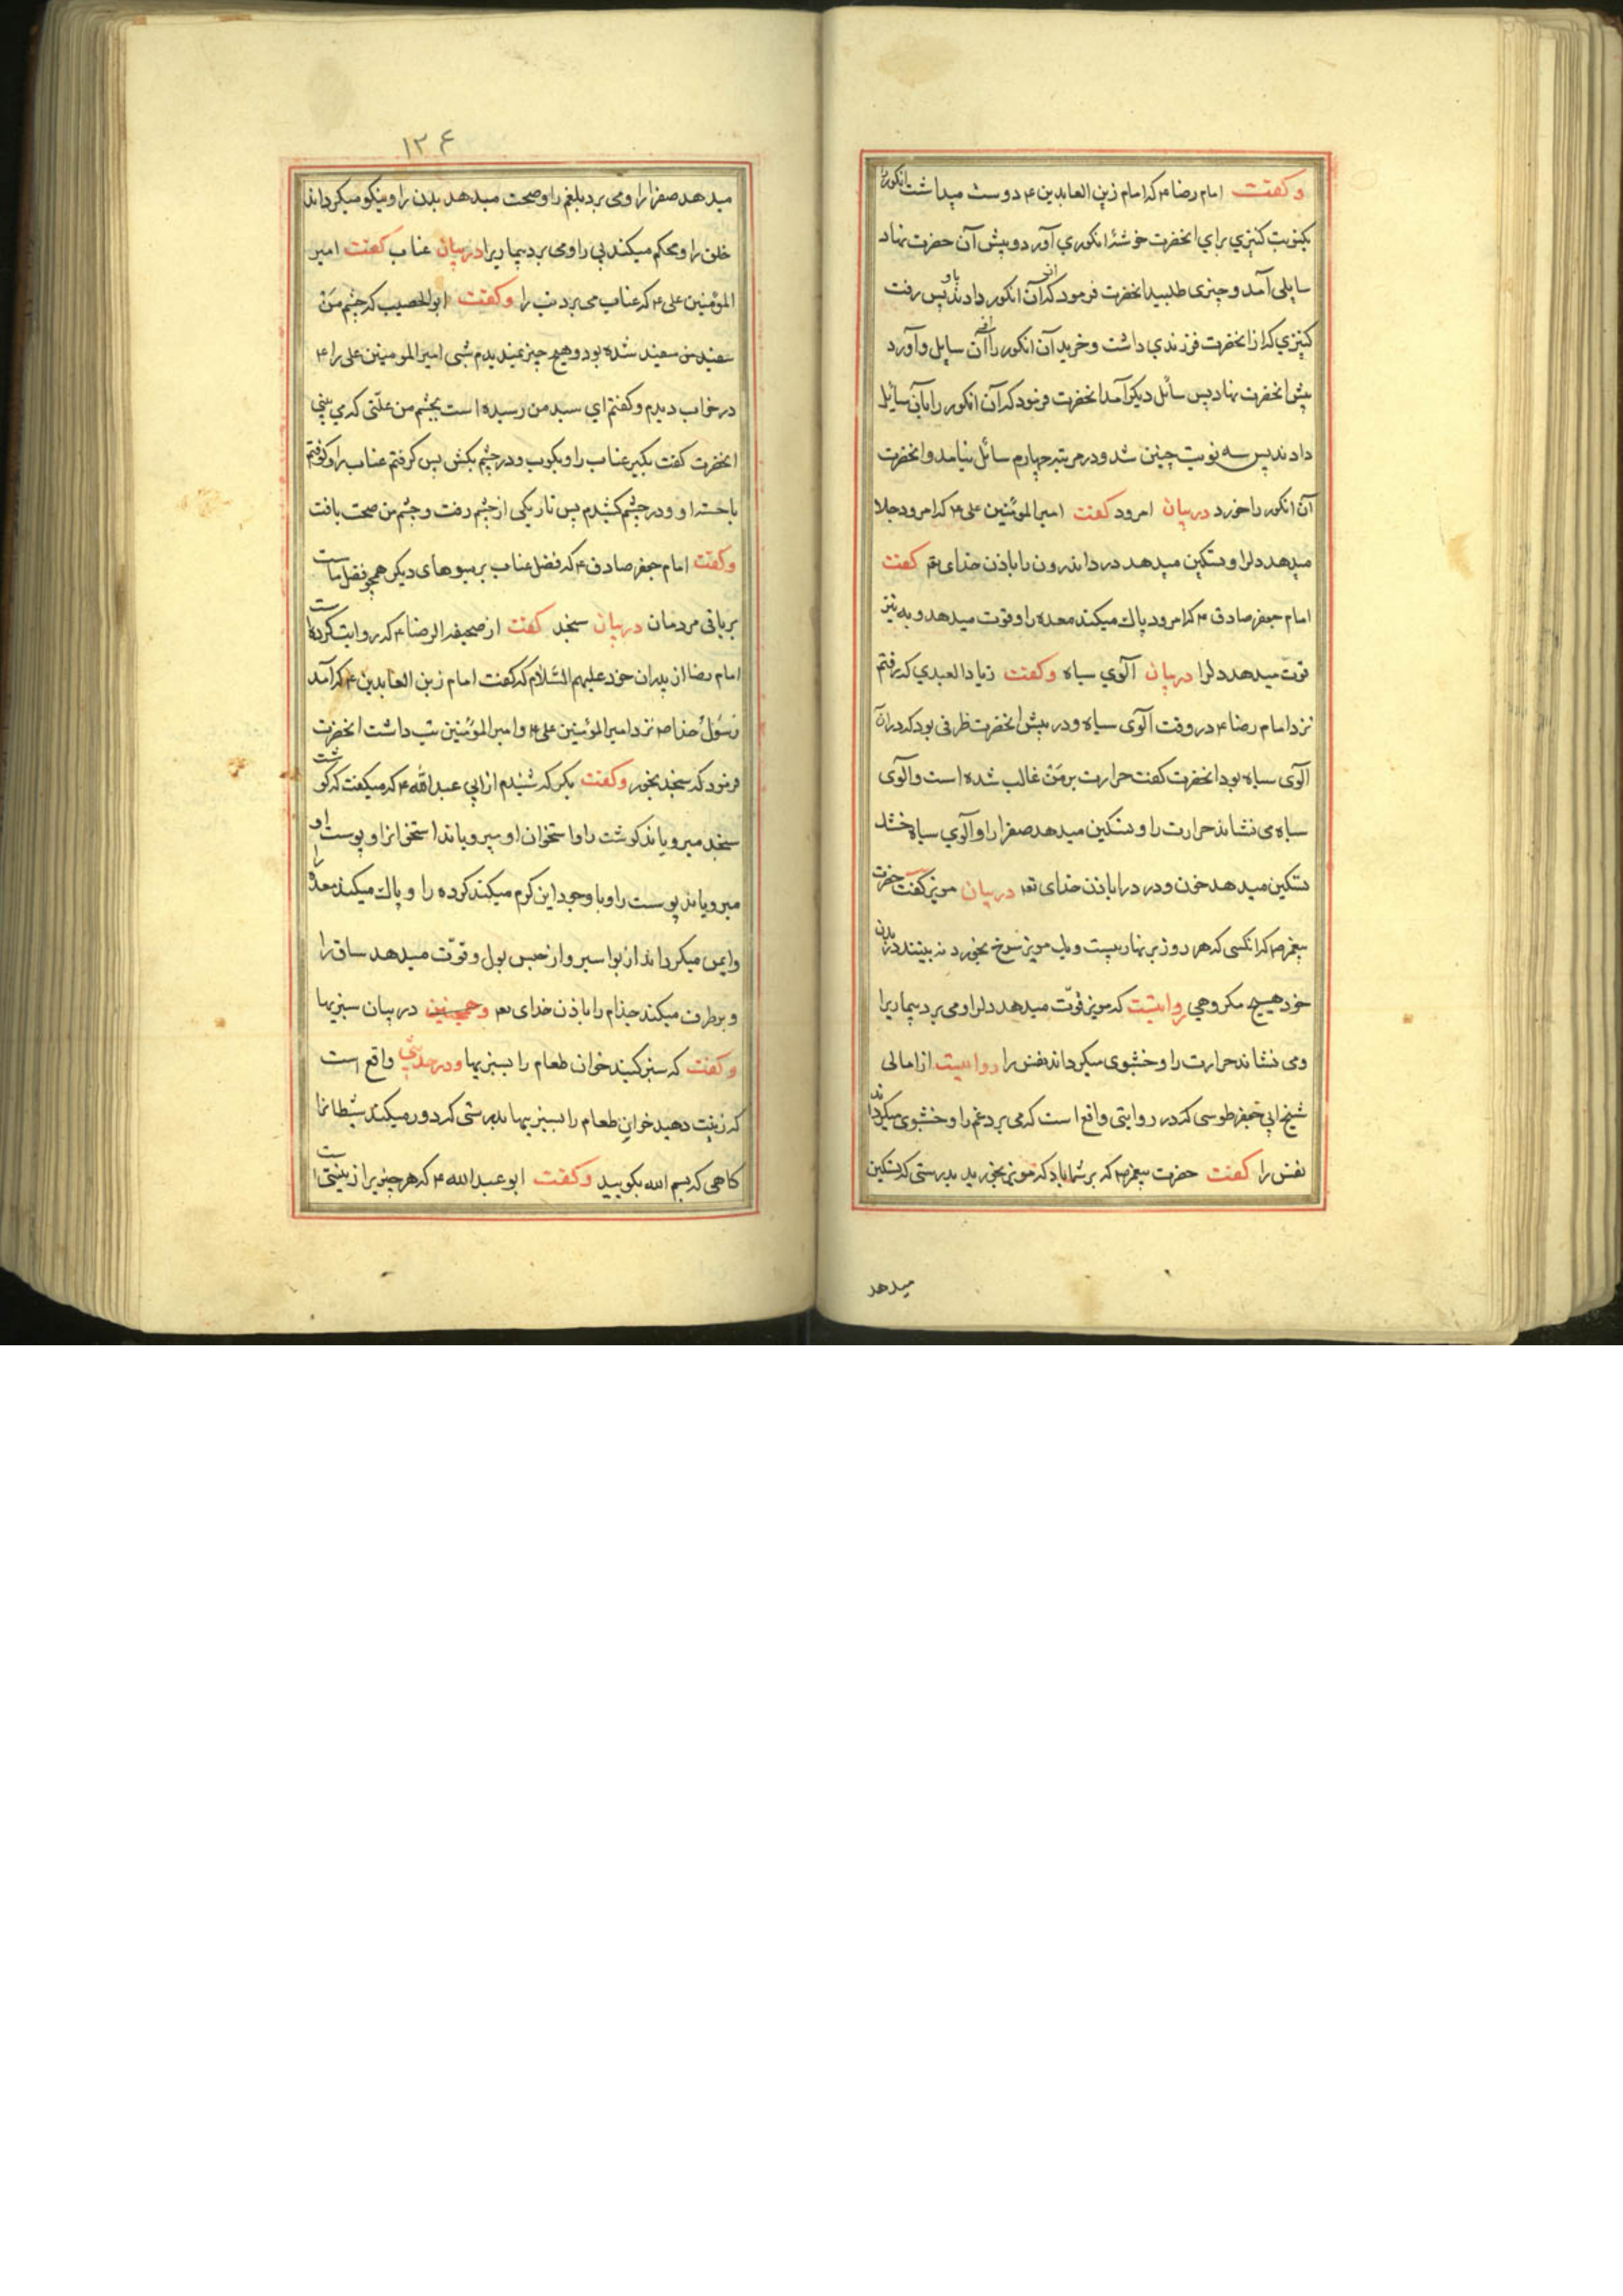 وكفت امام رضا ۴ كه امام زين العابدين ۴ دوست ميداشت انكور را
يكنوبت كنيزي براي انحضرت خوشۀ انكوري آورد و پيش آن حضرت نهاد
سايلى آمد و چيزى طلبيد انحضرت فرمود كه آن انكور باو دادند پس رفت
كنيزي كه از انحضرت فرزندي داشت و خريد آن انكور را از آن سايل و آورد
پيش انحضرت نهاد پس سائل ديكر آمد انحضرت فرمود كه آن انكور را بآن سايل
دادند پس سه نوبت چنين شد و در مرتبه چهارم سائل نيامد و انحضرت
آن انكور را خورد دربيان امرود كفت امير المومنين على ۴ كه امرود جلا
ميدهد دلرا و تسكين ميدهد دردا ندرون را باذن خداى تع كفت
امام جعفر صادق ۴ كه امرود پاك ميكند معده را و قوت ميدهد و به نيز
قوت ميدهد دلرا دربيان آلوي سياه وكفت زياد العبدي كه رفتم
نزد امام رضا ۴ در وقت آلوى سياه و در پيش انحضرت ظرفى بود كه در آن
آلوى سياه بود انحضرت كفت حرارت بر من غالب شده است و آلوى
سياه مى نشاند حرارت را و تسكين ميدهد صفرا را و آلوي سياه خشك
تسكين ميدهد خون و درد را باذن خداى تع دربيان مويز كفت حضرت
پيغمبر ص كه انكسى كه هر روز بر نهار بيست و يك مويز سرخ بخورد نه بيند در بدن
خود هيچ مكروهي روايتست كه مويز قوّت ميدهد دلرا و مى برد بيماريرا
ومى نشاند حرارت را و خشبوى ميكرداند نفس را روايتست از امالى
شيخ ابي جعفر طوسى كه در روايتى واقع است كه مى برد غم را و خشبوى ميكرداند
نفس را كفت حضرت پيغمبر ص كه بر شما باد كه مويز بخوريد بدرستى كه تسكين
ميدهد
۱۲۴
ميدهد صفرا را و مى برد بلغم را و صحت ميدهد بدن را و نيكو ميكرداند
خلق را و محكم ميكند پى را و مى برد بيماريرا دربيان عناب كفت امير
المؤمنين على ۴ كه عناب مى برد تب را وكفت ابو الحصيب كه چشم من
سفيد شده بود و هيچ چيز نميديدم شبى امير المومنين على را ۴
در خواب ديدم و كفتم اي سيد من رسيده است بچشم من علّتى كه مي بيني
انحضرت كفت بكير عناب را و بكوب و در چشم بكش پس كرفتم عناب را و كوفتم
با خسته او و در چشم كشيدم پس تاريكى از چشم رفت و چشم من صحت يافت
وكفت امام جعفر صادق ۴ كه فضل عناب بر ميوهاى ديكر همچو فضل ماست
بر باقى مردمان دربيان سنجد كفت از صحيفه الرضا ۴ كه روايت كرده است
امام رضا از پدران خود عليهم السّلام كه كفت امام زين العابدين ۴ كه آمد
رسول خدا ص نزد امير المومنين على ۴ و امير المومنين تب داشت انحضرت
فرمود كه سنجد بخور وكفت بكر كه شنيدم از ابي عبد الله ۴ كه ميكفت كه كوشت
سنجد ميروياند كوشت را و استخوان او ميروياند استخوانرا و پوست او
ميروياند پوست را و با وجود اين كرم ميكند كرده را و پاك ميكند معده را
و ايمن ميكرداند از بواسير و از حبس بول و قوّت ميدهد ساق را
و برطرف ميكند جذام را باذن خداى تع وهمچنين دربيان سبزيها
وكفت كه سبز كنيد خوان طعام را بسبزيها و در حديثي واقع است
كه زينت دهيد خوان طعام را بسبزيها بدرستى كه دور ميكند شيطانرا
كاهى كه بسم الله بكوييد وكفت ابو عبد الله ۴ كه هر چيزيرا زينتى است